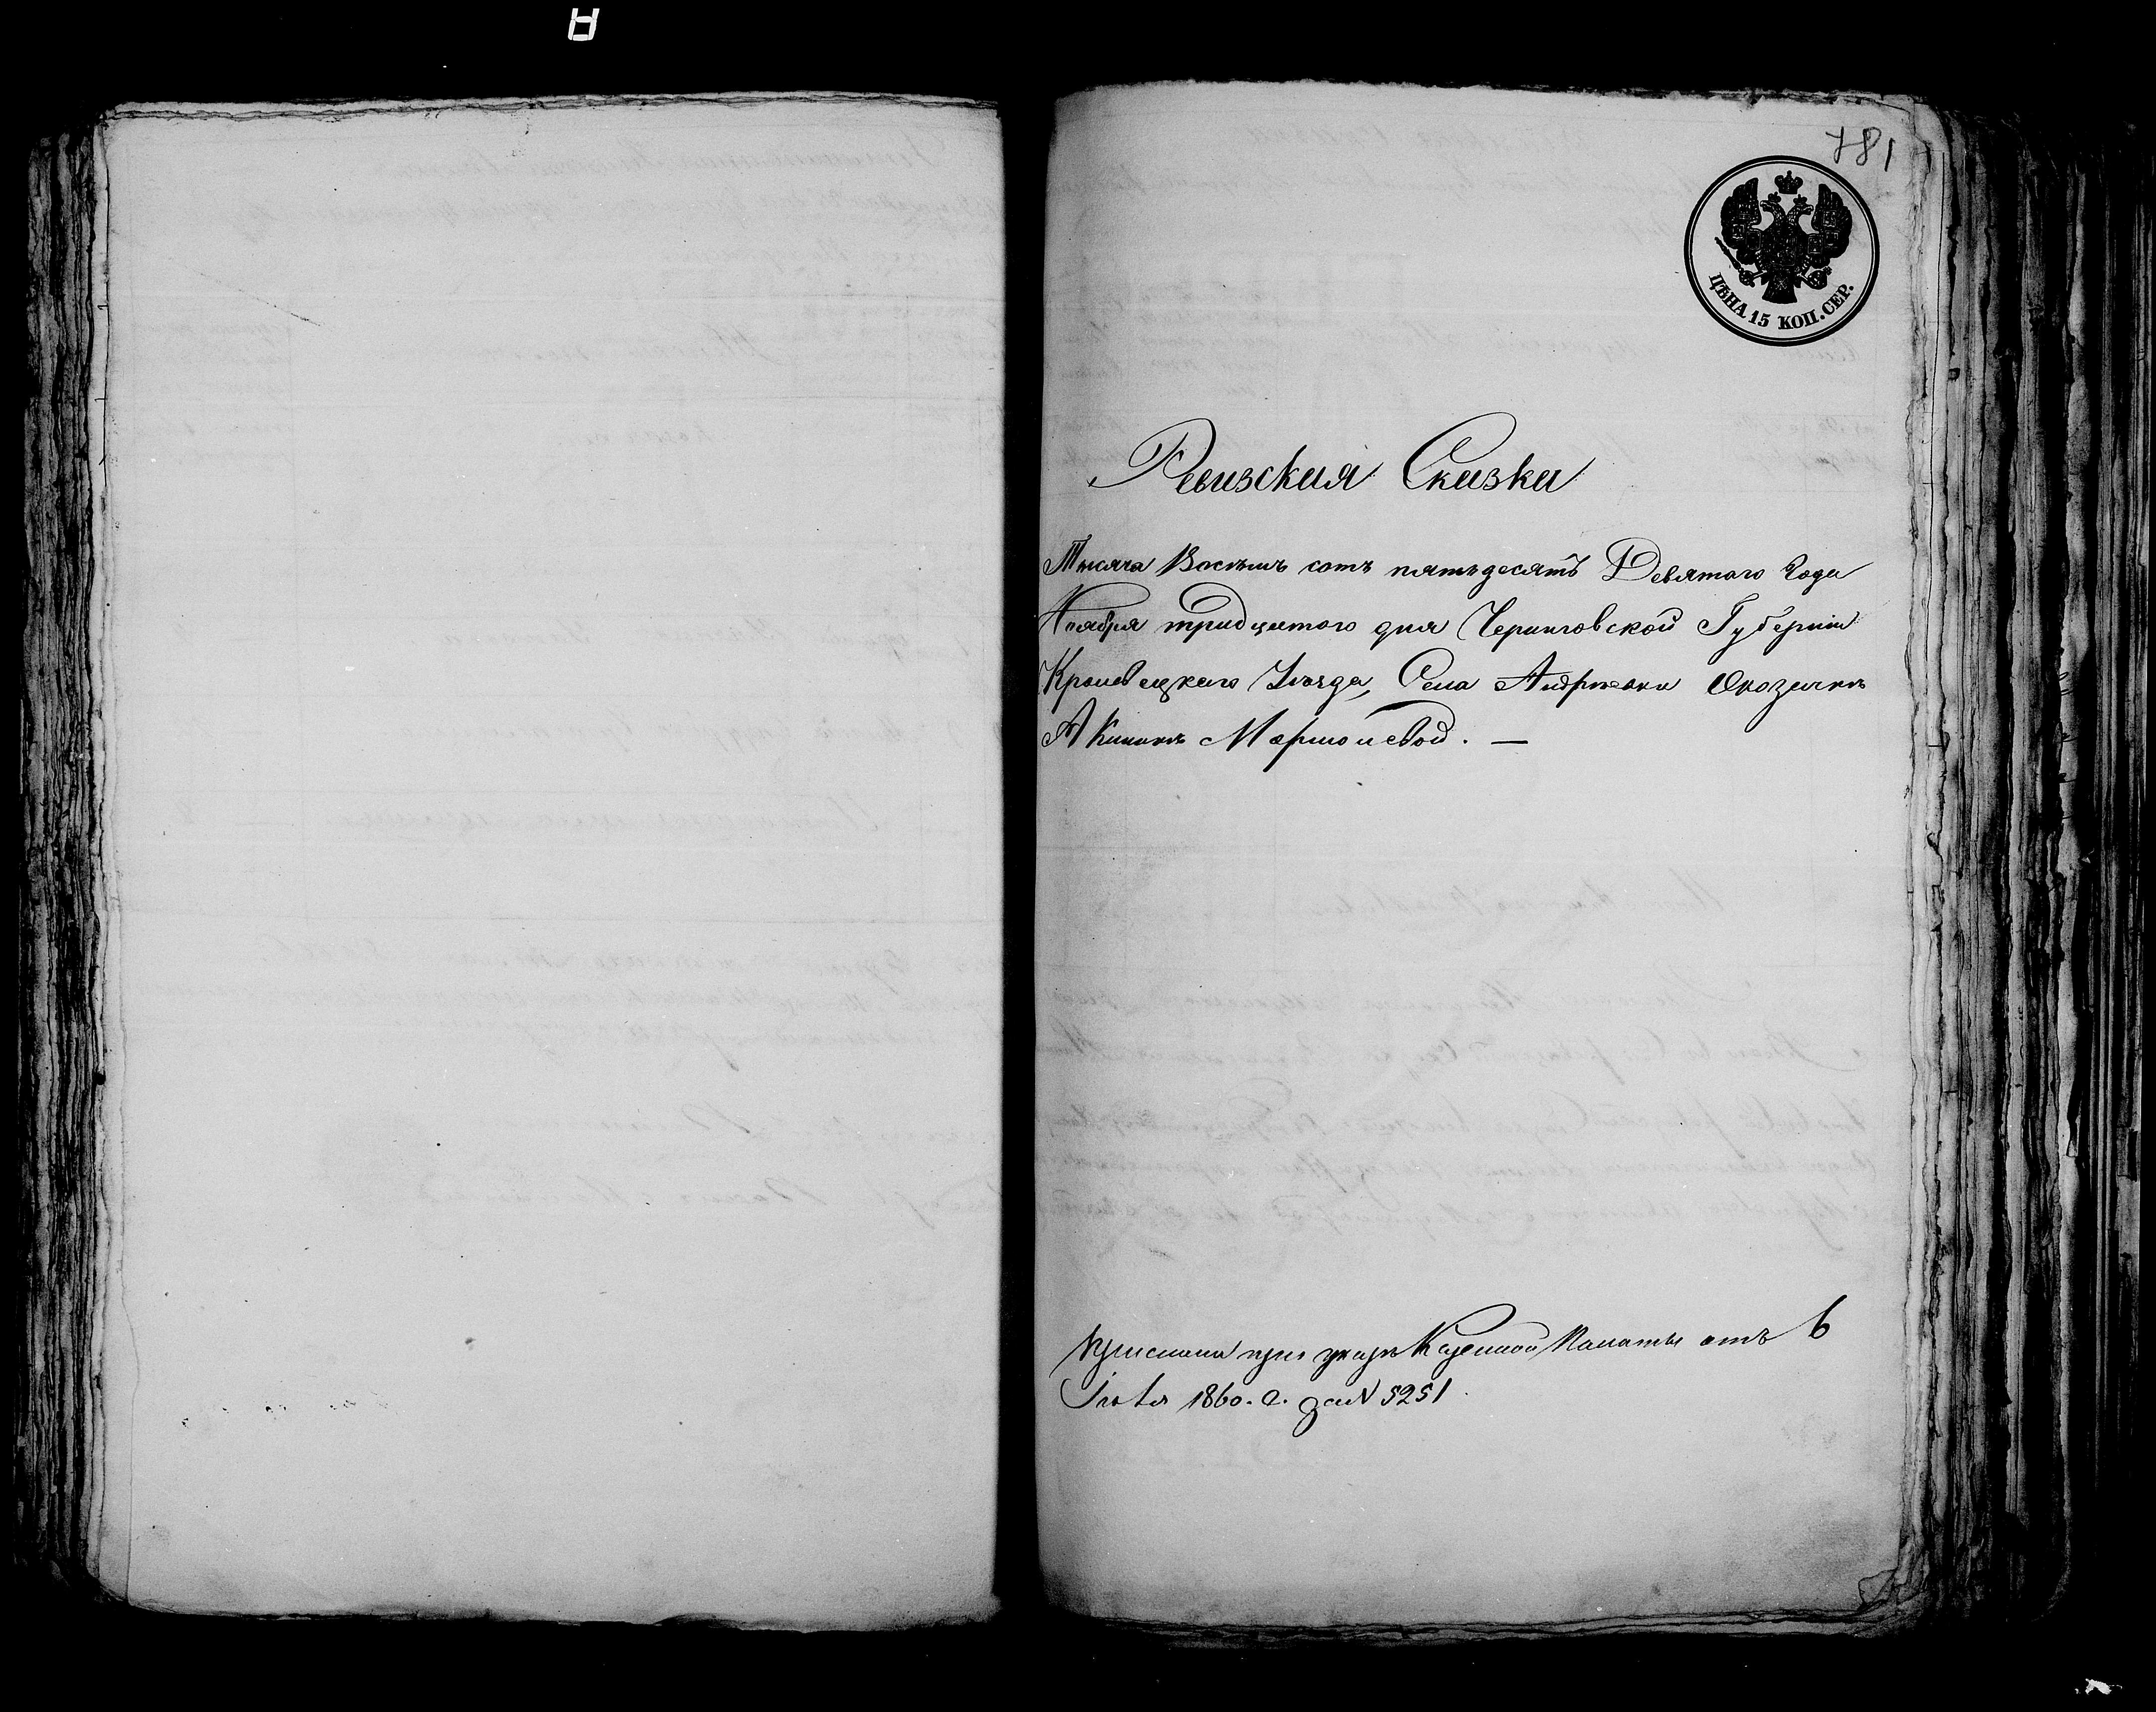 781
ЦѢНА 15 КОП. СЕР.
Ревизская Сказка
Тысяча Восѣмь сотъ пятьдесятъ Девятого Года
Ноября тридцатого дня Черниговской Губернии
Кролевецкого Уѣзда, Села Андрѣевки О козачкѣ
Акилинѣ Мармолевой. —
Прислана при указѣ Казенной Палаты отъ 6
Іюля 1860. г. за N 5251